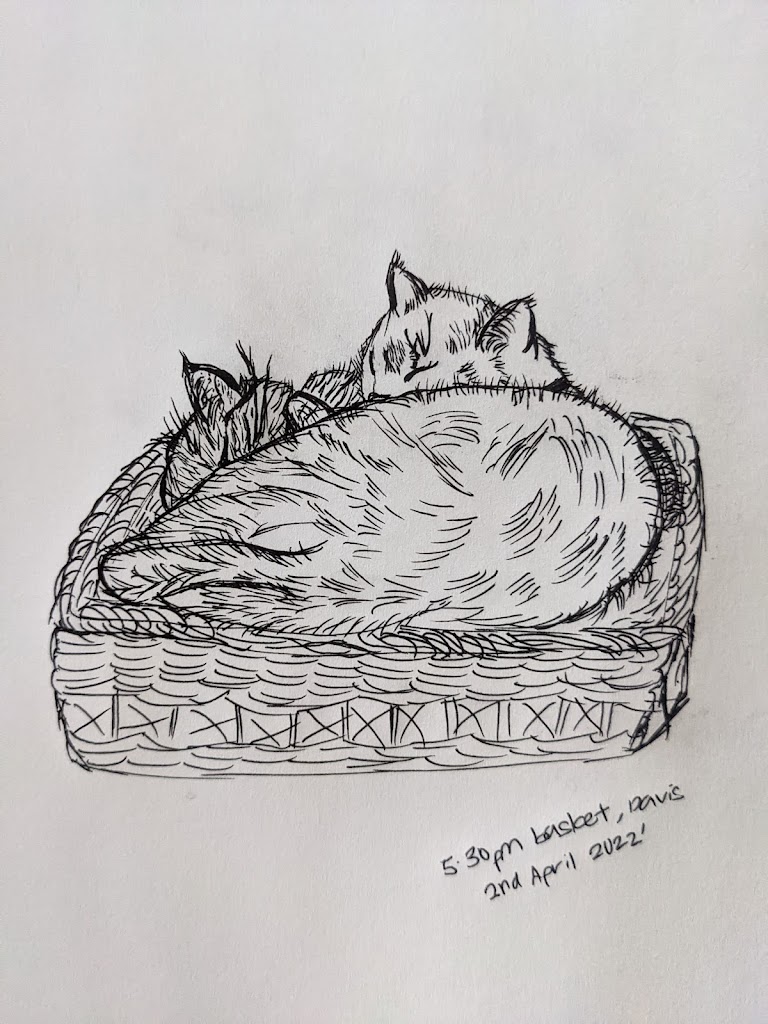 5:30pm basket, Davis
2nd April 2022'